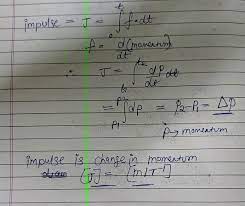 impulse = J = ∫ f·dt
f = d(momentum)/dt
∴ J = ∫ dp/dt dt
= ∫ dp = P2 - P1 = Δp
P → momentum
impulse is change in momentum
[J] = [M L T⁻¹]